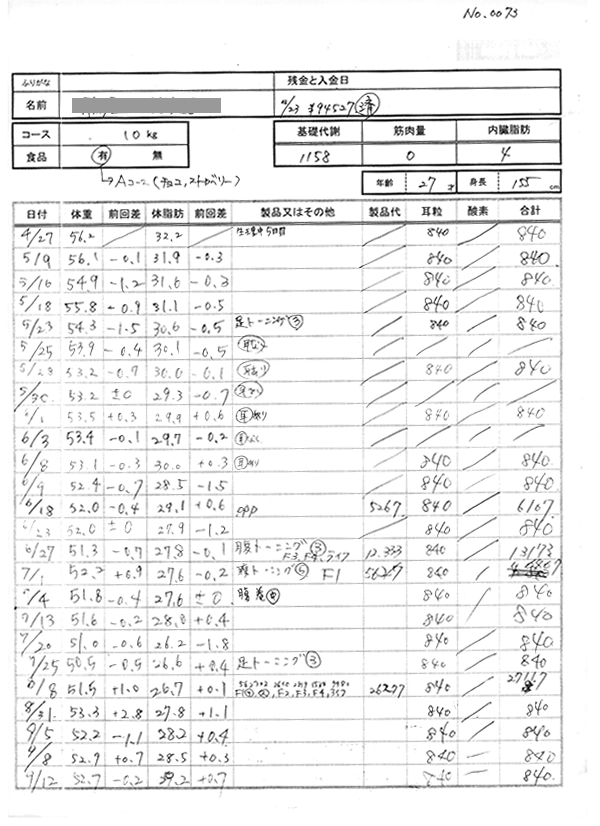 No.0073
ふりがな 残金と入金日
名前 4/23 ¥94527 済
コース 10kg 基礎代謝 筋肉量 内臓脂肪
食品 有 無 1158 0 4
→Aコース(チョコ,ストロベリー)
年齢 27才 身長 155cm
日付 体重 前回差 体脂肪 前回差 製品又はその他 製品代 耳粒 酸素 合計
4/27 56.2 32.2 生理中5日目 840 840
5/9 56.1 -0.1 31.9 -0.3 840 840
5/16 54.9 -1.2 31.6 -0.3 840 840
5/18 55.8 +0.9 31.1 -0.5 840 840
5/23 54.3 -1.5 30.6 -0.5 足トーニング③ 840 840
5/25 53.9 -0.4 30.1 -0.5
5/28 53.2 -0.7 30.0 -0.1 840 840
5/30 53.2 ±0 29.3 -0.7
6/1 53.5 +0.3 29.9 +0.6 耳あり 840 840
6/3 53.4 -0.1 29.7 -0.2 耳なし
6/8 53.1 -0.3 30.0 +0.3 耳あり 840 840
6/9 52.4 -0.7 28.5 -1.5 840 840
6/18 52.0 -0.4 29.1 +0.6 OPP 5267 840 6107
6/23 52.0 ±0 27.9 -1.2 840 840
6/27 51.3 -0.7 27.8 -0.1 腹トーニング③ F3,F4,ライフ 12.333 840 13173
7/1 52.2 +0.9 27.6 -0.2 トーニング⑤ F1 5627 840
7/4 51.8 -0.4 27.6 ±0 腹巻 840 840
7/13 51.6 -0.2 28.0 +0.4 840 840
7/20 51.0 -0.6 26.2 -1.8 840 840
7/25 50.5 -0.5 26.6 +0.4 足トーニング③ 840 840
8/8 51.5 +1.0 26.7 +0.1 F2,F3,F4 26277 840 27117
8/31 53.3 +2.8 27.8 +1.1 840 840
9/5 52.2 -1.1 28.2 +0.4 840 840
9/8 52.9 +0.7 28.5 +0.3 840 840
9/12 52.7 -0.2 29.2 +0.7 840 840